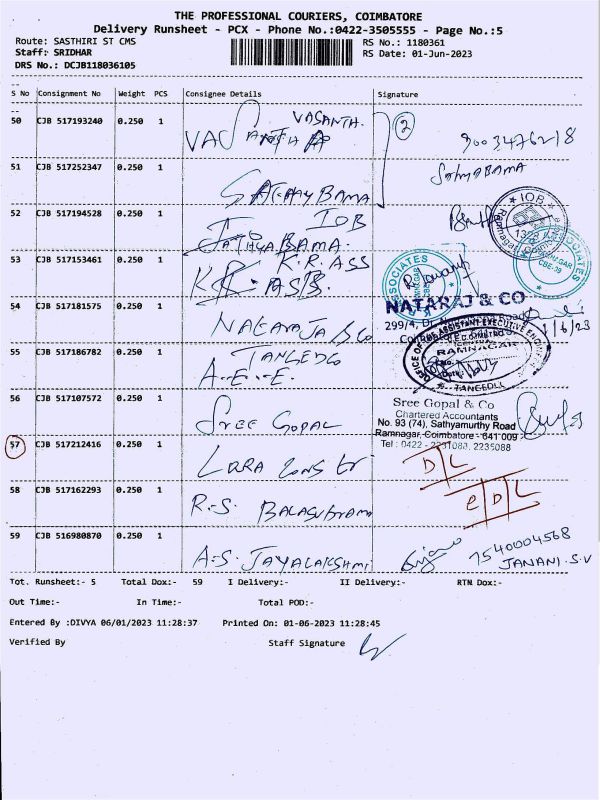 THE PROFESSIONAL COURIERS, COIMBATORE
Delivery Runsheet - PCX - Phone No.:0422-3505555 - Page No.:5
Route: SASTHIRI ST CMS
RS No.: 1180361
Staff: SRIDHAR
RS Date: 01-Jun-2023
DRS No.: DCJB118036105
S No Consignment No Weight PCS Consignee Details Signature
50 CJB 517193240 0.250 1 VASANTHA
VASANTH.
2
9003476218
51 CJB 517252347 0.250 1 SATHYBAMA
Sathyabama
52 CJB 517194528 0.250 1 IOB
SATHYABAMA.
IOB
53 CJB 517153461 0.250 1 K.R. ASS
K.R. ASS.
ASSOCIATES
ASSOCIATES
CBE-39
54 CJB 517181575 0.250 1 NATARAJA & CO
NATARAJ & CO
299/4, Dr. N Road
1/6/23
55 CJB 517186782 0.250 1 TANGEDCO
A.E.E.
OFFICE OF THE ASSISTANT EXECUTIVE ENGINEER
RAMNAGAR
56 CJB 517107572 0.250 1 SREE GOPAL
Sree Gopal & Co
Chartered Accountants
No. 93 (74), Sathyamurthy Road
Ramnagar, Coimbatore - 641 009
Tel : 0422 - 2231088, 2235088
57 CJB 517212416 0.250 1 LARA
D/L
58 CJB 517162293 0.250 1 R.S. BALASUBRAMA
e D/L
59 CJB 516980870 0.250 1 A.S. JAYALAKSHMI
7540004568
JANANI.S.V
Tot. Runsheet:- 5 Total Dox:- 59 I Delivery:- II Delivery:- RTN Dox:-
Out Time:- In Time:- Total POD:-
Entered By :DIVYA 06/01/2023 11:28:37 Printed On: 01-06-2023 11:28:45
Verified By Staff Signature